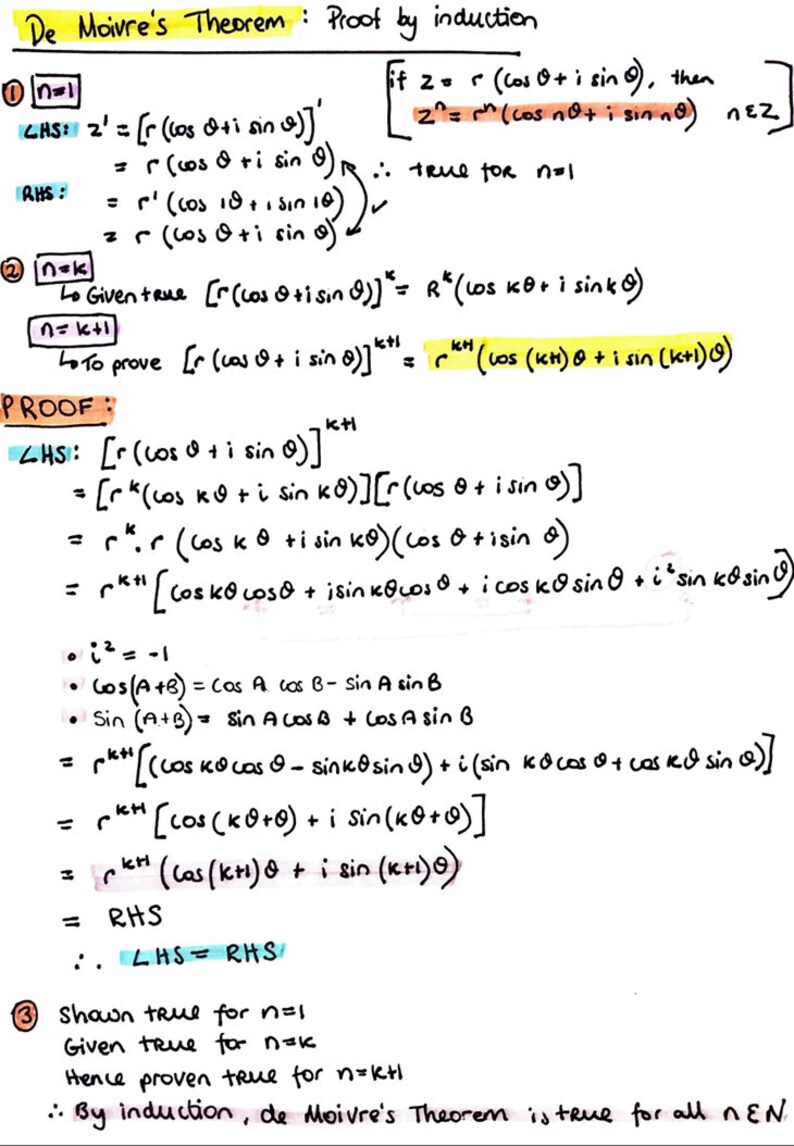 De Moivre's Theorem : Proof by induction
[if z = r (cos θ + i sin θ), then
zⁿ = rⁿ (cos nθ + i sin nθ) n∈Z]
① n=1
LHS: z¹ = [r (cos θ + i sin θ)]¹
= r (cos θ + i sin θ) ∴ true for n=1
RHS: = r¹ (cos 1θ + i sin 1θ) ✓
= r (cos θ + i sin θ)
② n=k
↳ Given true [r (cos θ + i sin θ)]ᵏ = Rᵏ (cos kθ + i sin kθ)
n=k+1
↳ To prove [r (cos θ + i sin θ)]ᵏ⁺¹ = rᵏ⁺¹ (cos (k+1) θ + i sin (k+1) θ)
PROOF:
LHS: [r (cos θ + i sin θ)]ᵏ⁺¹
= [rᵏ (cos kθ + i sin kθ)][r (cos θ + i sin θ)]
= rᵏ . r (cos k θ + i sin kθ)(cos θ + i sin θ)
= rᵏ⁺¹ [cos kθ cos θ + i sin kθ cos θ + i cos kθ sin θ + i² sin kθ sin θ]
• i² = -1
• Cos(A+B) = Cos A cos B - Sin A sin B
• Sin (A+B) = Sin A cos B + Cos A sin B
= rᵏ⁺¹ [(cos kθ cos θ - sin kθ sin θ) + i (sin kθ cos θ + cos kθ sin θ)]
= rᵏ⁺¹ [cos (kθ+θ) + i sin (kθ+θ)]
= rᵏ⁺¹ (cos (k+1) θ + i sin (k+1) θ)
= RHS
∴ LHS = RHS
③ Shown true for n=1
Given true for n=k
Hence proven true for n=k+1
∴ By induction, de Moivre's Theorem is true for all n∈N